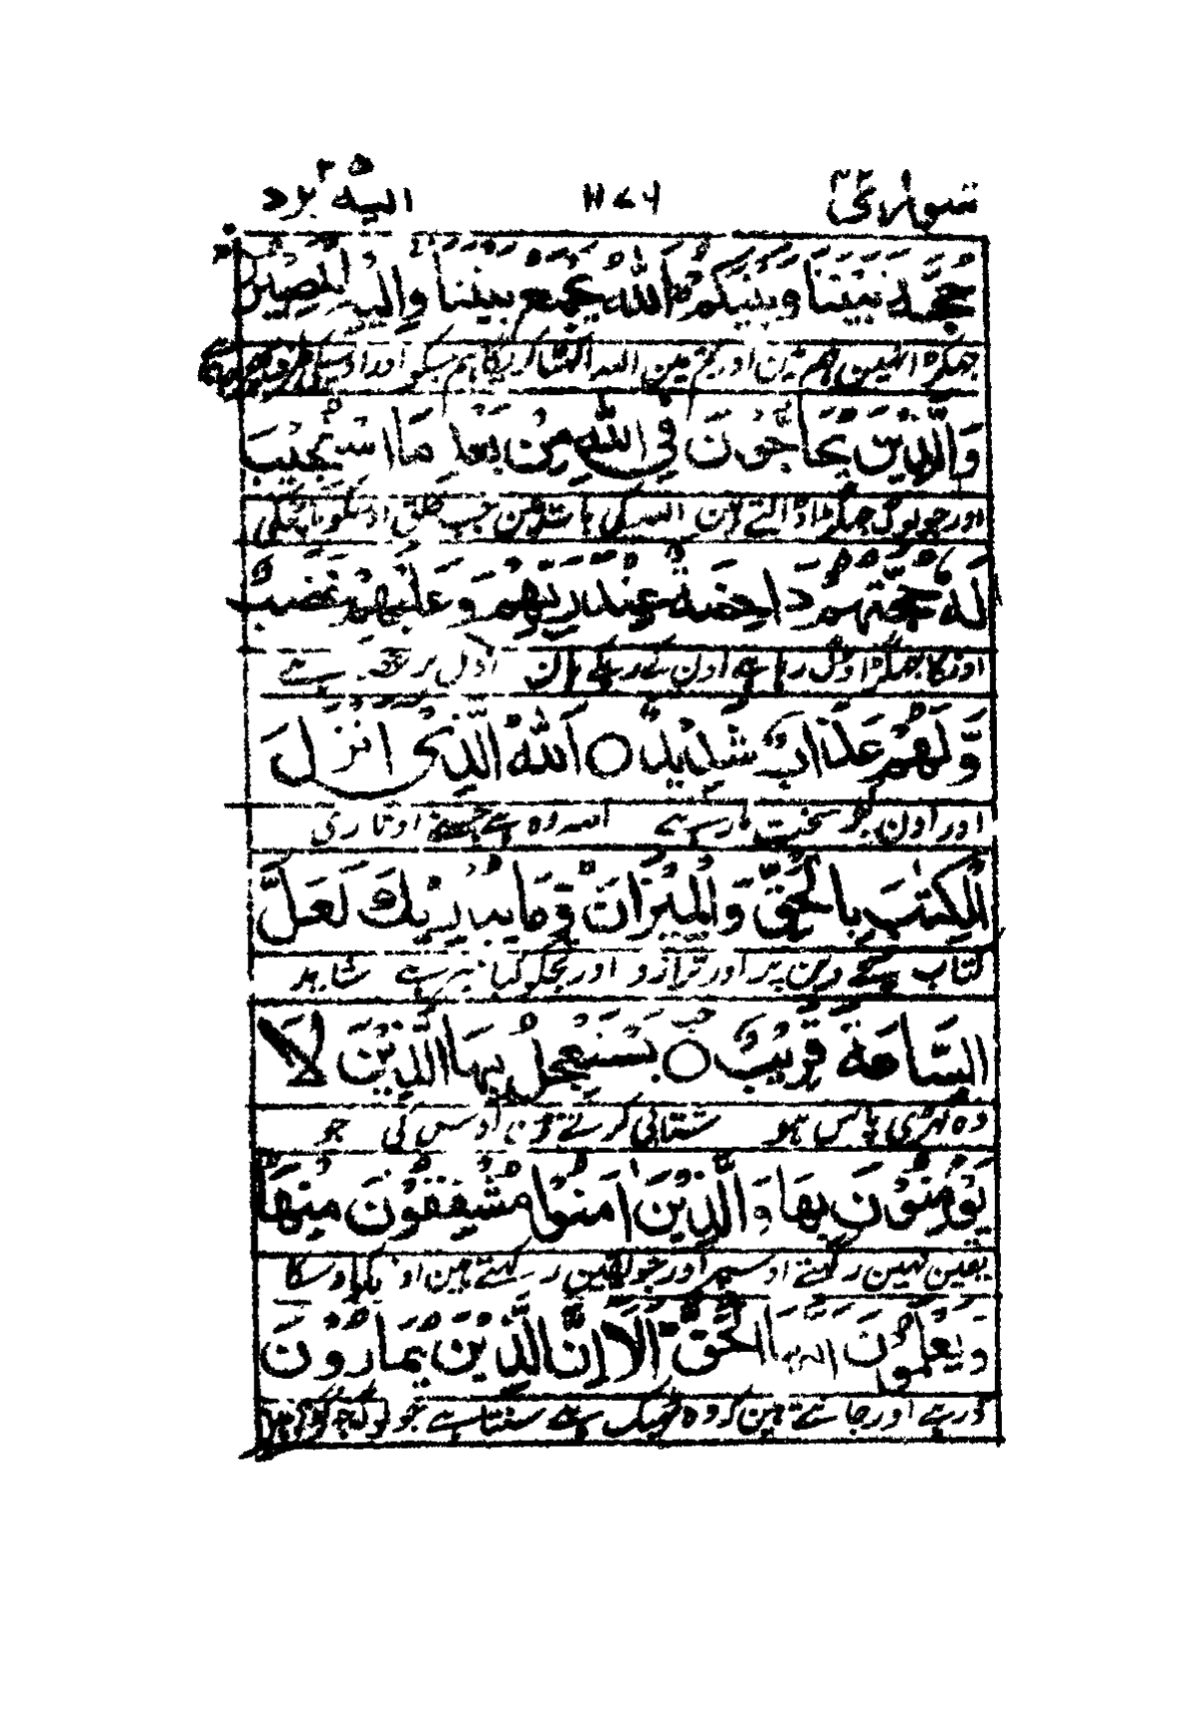 الیه یرد ۲۵ ۱۱۷۶ شوری ۴۲
حُجَّةَ بَيْنَنَا وَبَيْنَكُمُ اَللّٰهُ يَجْمَعُ بَيْنَنَا وَاِلَيْهِ الْمَصِيْرُ
جهگڑا نہین ہم مین اور تم مین الله اکٹھا کریگا ہم سبکو اور اوسیکی طرف پھر جانا
وَالَّذِيْنَ يُحَاجُّوْنَ فِي اللّٰهِ مِنْ بَعْدِ مَا اسْتُجِيْبَ
اور جو لوگ جهگڑا ڈالتے ہین الله کی بات مین جب خلق اوسکو مان چکی
لَهٗ حُجَّتُهُمْ دَاحِضَةٌ عِنْدَ رَبِّهِمْ وَعَلَيْهِمْ غَضَبٌ
اونکا جهگڑا ڈگ رہا ہے اون کے رب کے ہان اون پر غصہ ہے
وَّلَهُمْ عَذَابٌ شَدِيْدٌ ○ اَللّٰهُ الَّذِيْ اَنْزَلَ
اور اون کو سخت مار ہے الله وہ ہے جسنے اوتاری
الْكِتٰبَ بِالْحَقِّ وَالْمِيْزَانَ وَمَا يُدْرِيْكَ لَعَلَّ
کتاب سچے دین پر اور ترازو اور تجکو کیا خبر ہے شاید
السَّاعَةَ قَرِيْبٌ ○ يَسْتَعْجِلُ بِهَا الَّذِيْنَ لَا
وہ گھڑی پاس ہو شتابی کرتے ہین اوس کی جو
يُؤْمِنُوْنَ بِهَا وَالَّذِيْنَ اٰمَنُوْا مُشْفِقُوْنَ مِنْهَا
یقین نہین رکھتے اوسپر اور جو یقین رکھتے ہین اونکو اوسکا
وَيَعْلَمُوْنَ اَنَّهَا الْحَقُّ اَلَا اِنَّ الَّذِيْنَ يُمَارُوْنَ
ڈر ہے اور جانتے ہین کہ وہ ٹھیک ہے سنتا ہے جو لوگ